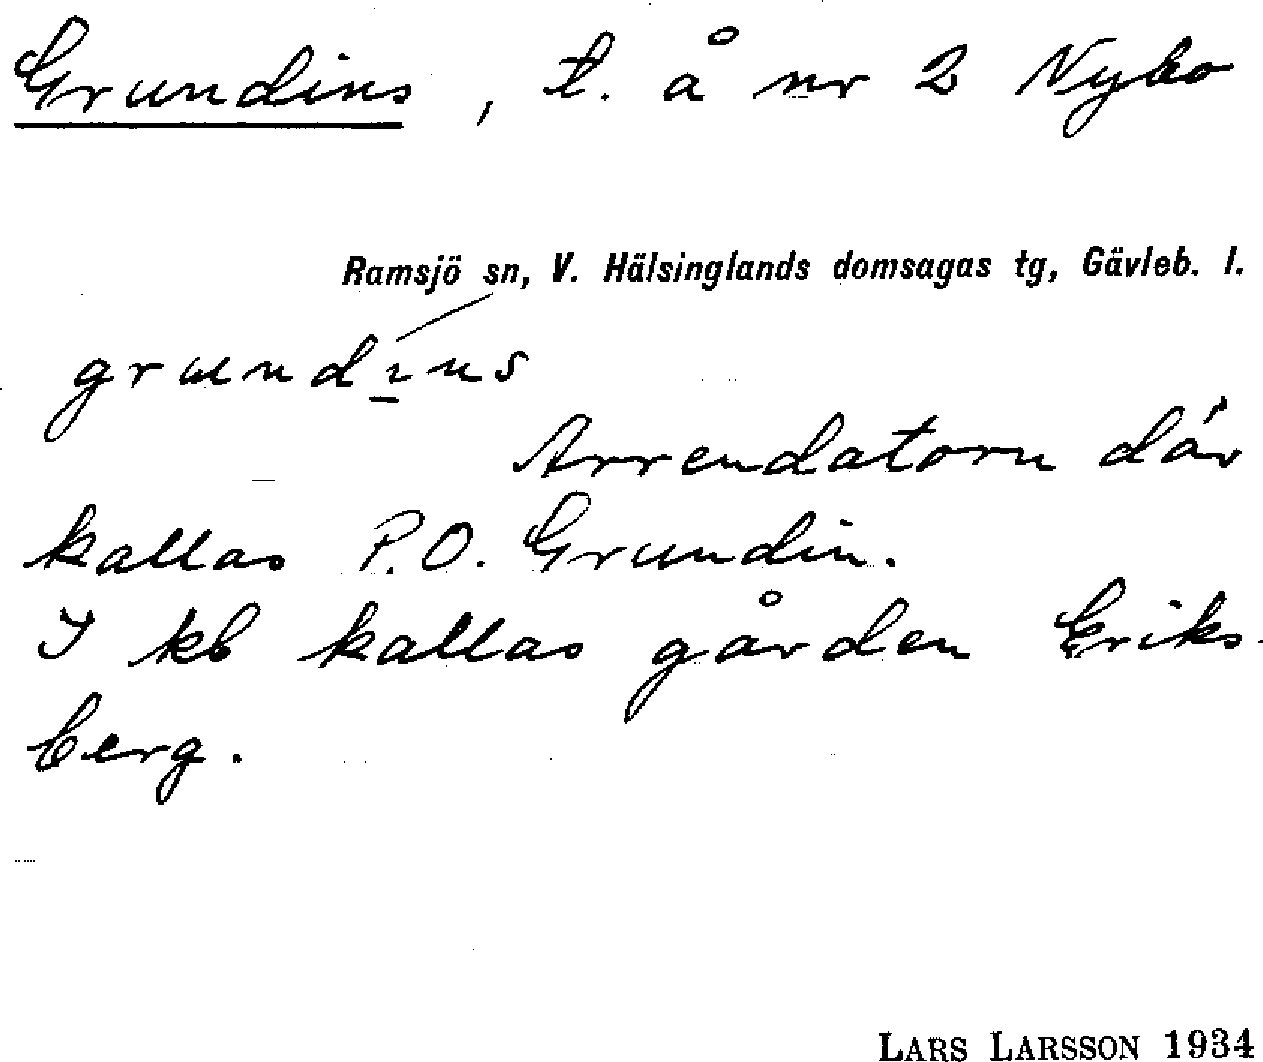 Grundins, t. å nr 2 Nybo
Ramsjö sn, V. Hälsinglands domsagas tg, Gävleb. l.
grundı̱ns
Arrendatorn där
kallas P.O. Grundin.
I kb kallas gården Eriks-
berg.
LARS LARSSON 1934